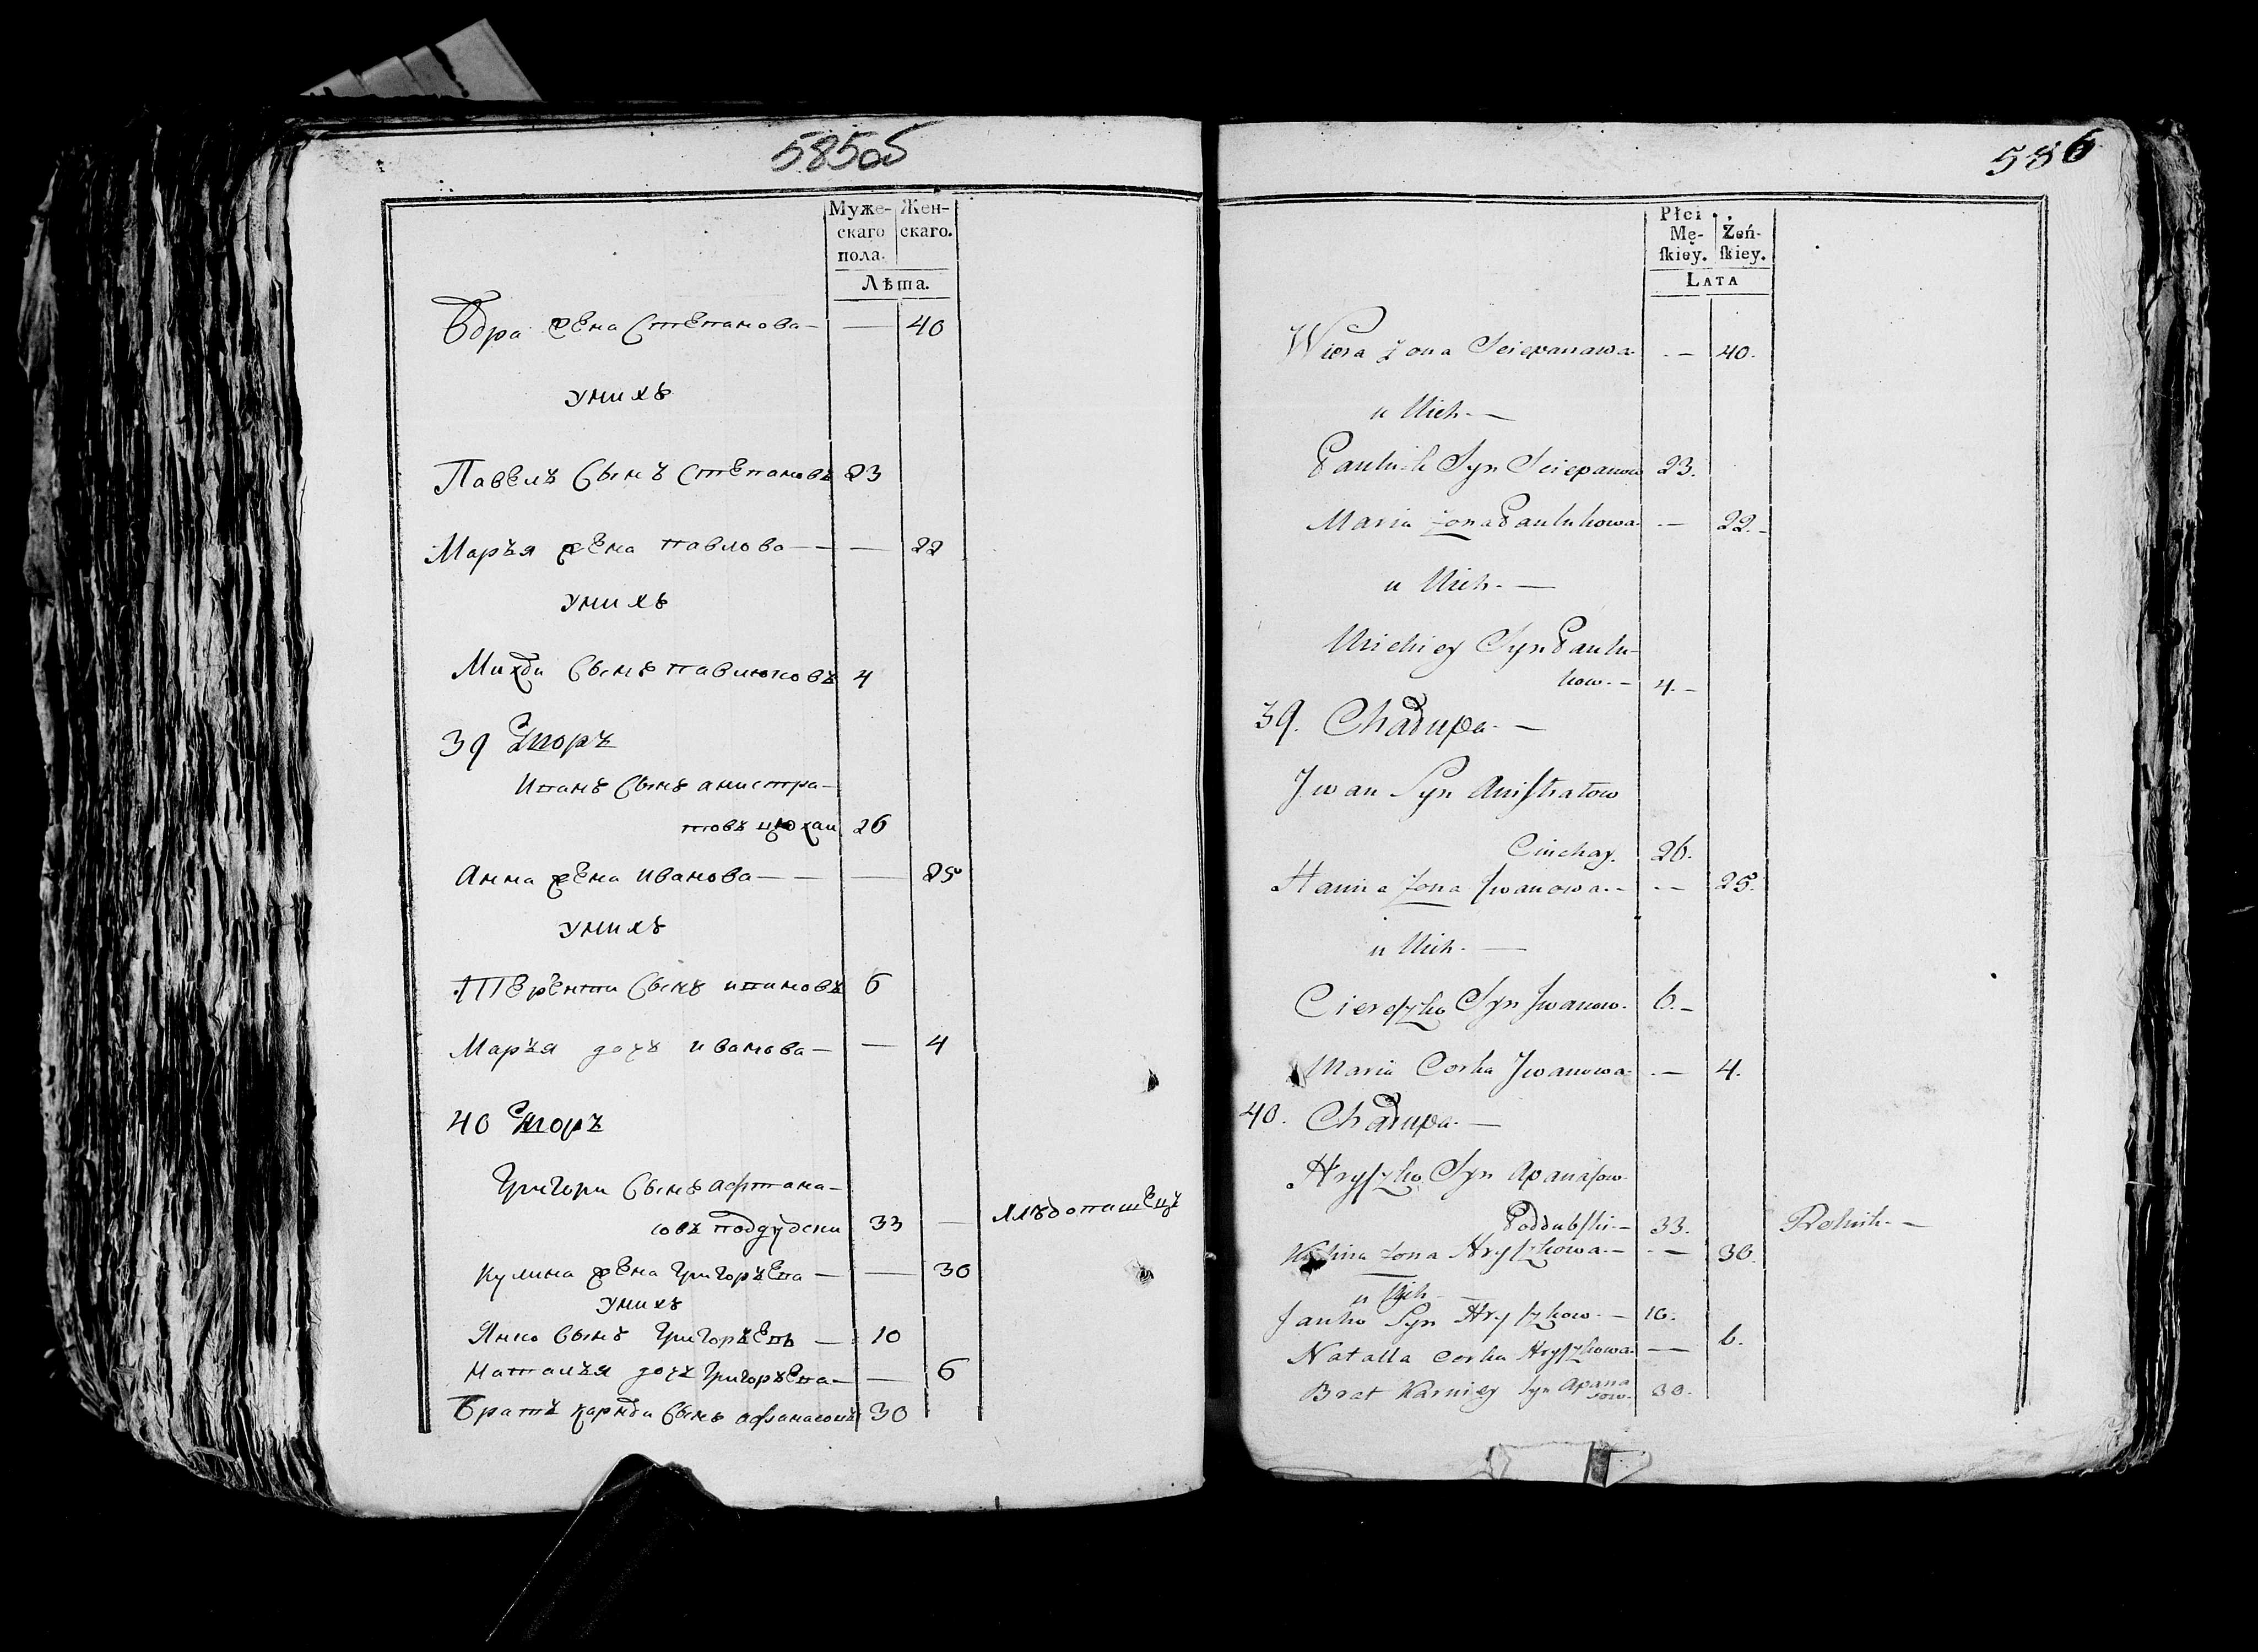 585об
Муже- Жен-
скаго скаго.
пола.
Лѣта.
Вѣра жена Степанова — — 40
унихъ
Павелъ сынъ Степановъ 23
Марья жена павлова — — — 22
унихъ
Михѣи сынъ павлюковъ 4
39 Дворъ
Иванъ сынъ анистра-
товъ цюхаи 26
Анна жена иванова — — — 25
унихъ
Терентии сынъ ивановъ 6
Марья дочь иванова — — 4
40 Дворъ
Григори сынъ афтана-
совъ поддубски 33 — хлѣбопашецъ
кулина жена григорьева — — 30
унихъ
Янко сынъ григорьевъ — 10
Наталья дочь григорьева — — 6
Братъ карнѣи сынъ афанасовъ 30
586
Płci
Mę- Żeń-
ſkiey. ſkiey.
LATA
Wiera Zona Sciepanawa . — 40.
u Nich. —
Pauluk Syn Sciepanow 23.
Maria zona Paulukowa . — 22. -
u Nich. —
Michiey Syn Paulu-
kow. - 4. -
39. Chałupa. —
Jwan Syn Aniſtratow
Ciuchay. 26.
Hanna Zona Jwanowa. - . — 25.
u Nich. —
Ciereſzko Syn Jwanow. 6. -
Maria Corka Jwanowa . — 4.
40. Chałupa. —
Hryſzko Syn Apanaſow
Poddubſki — 33. Rolnik. —
Kulina zona Hryſzkowa. - . — 30.
u Nich
Janko Syn Hryſzkow. — 10.
Natalla corka Hryſzkowa. — 6.
Brat Karniey Syn Apana
sow. 30.